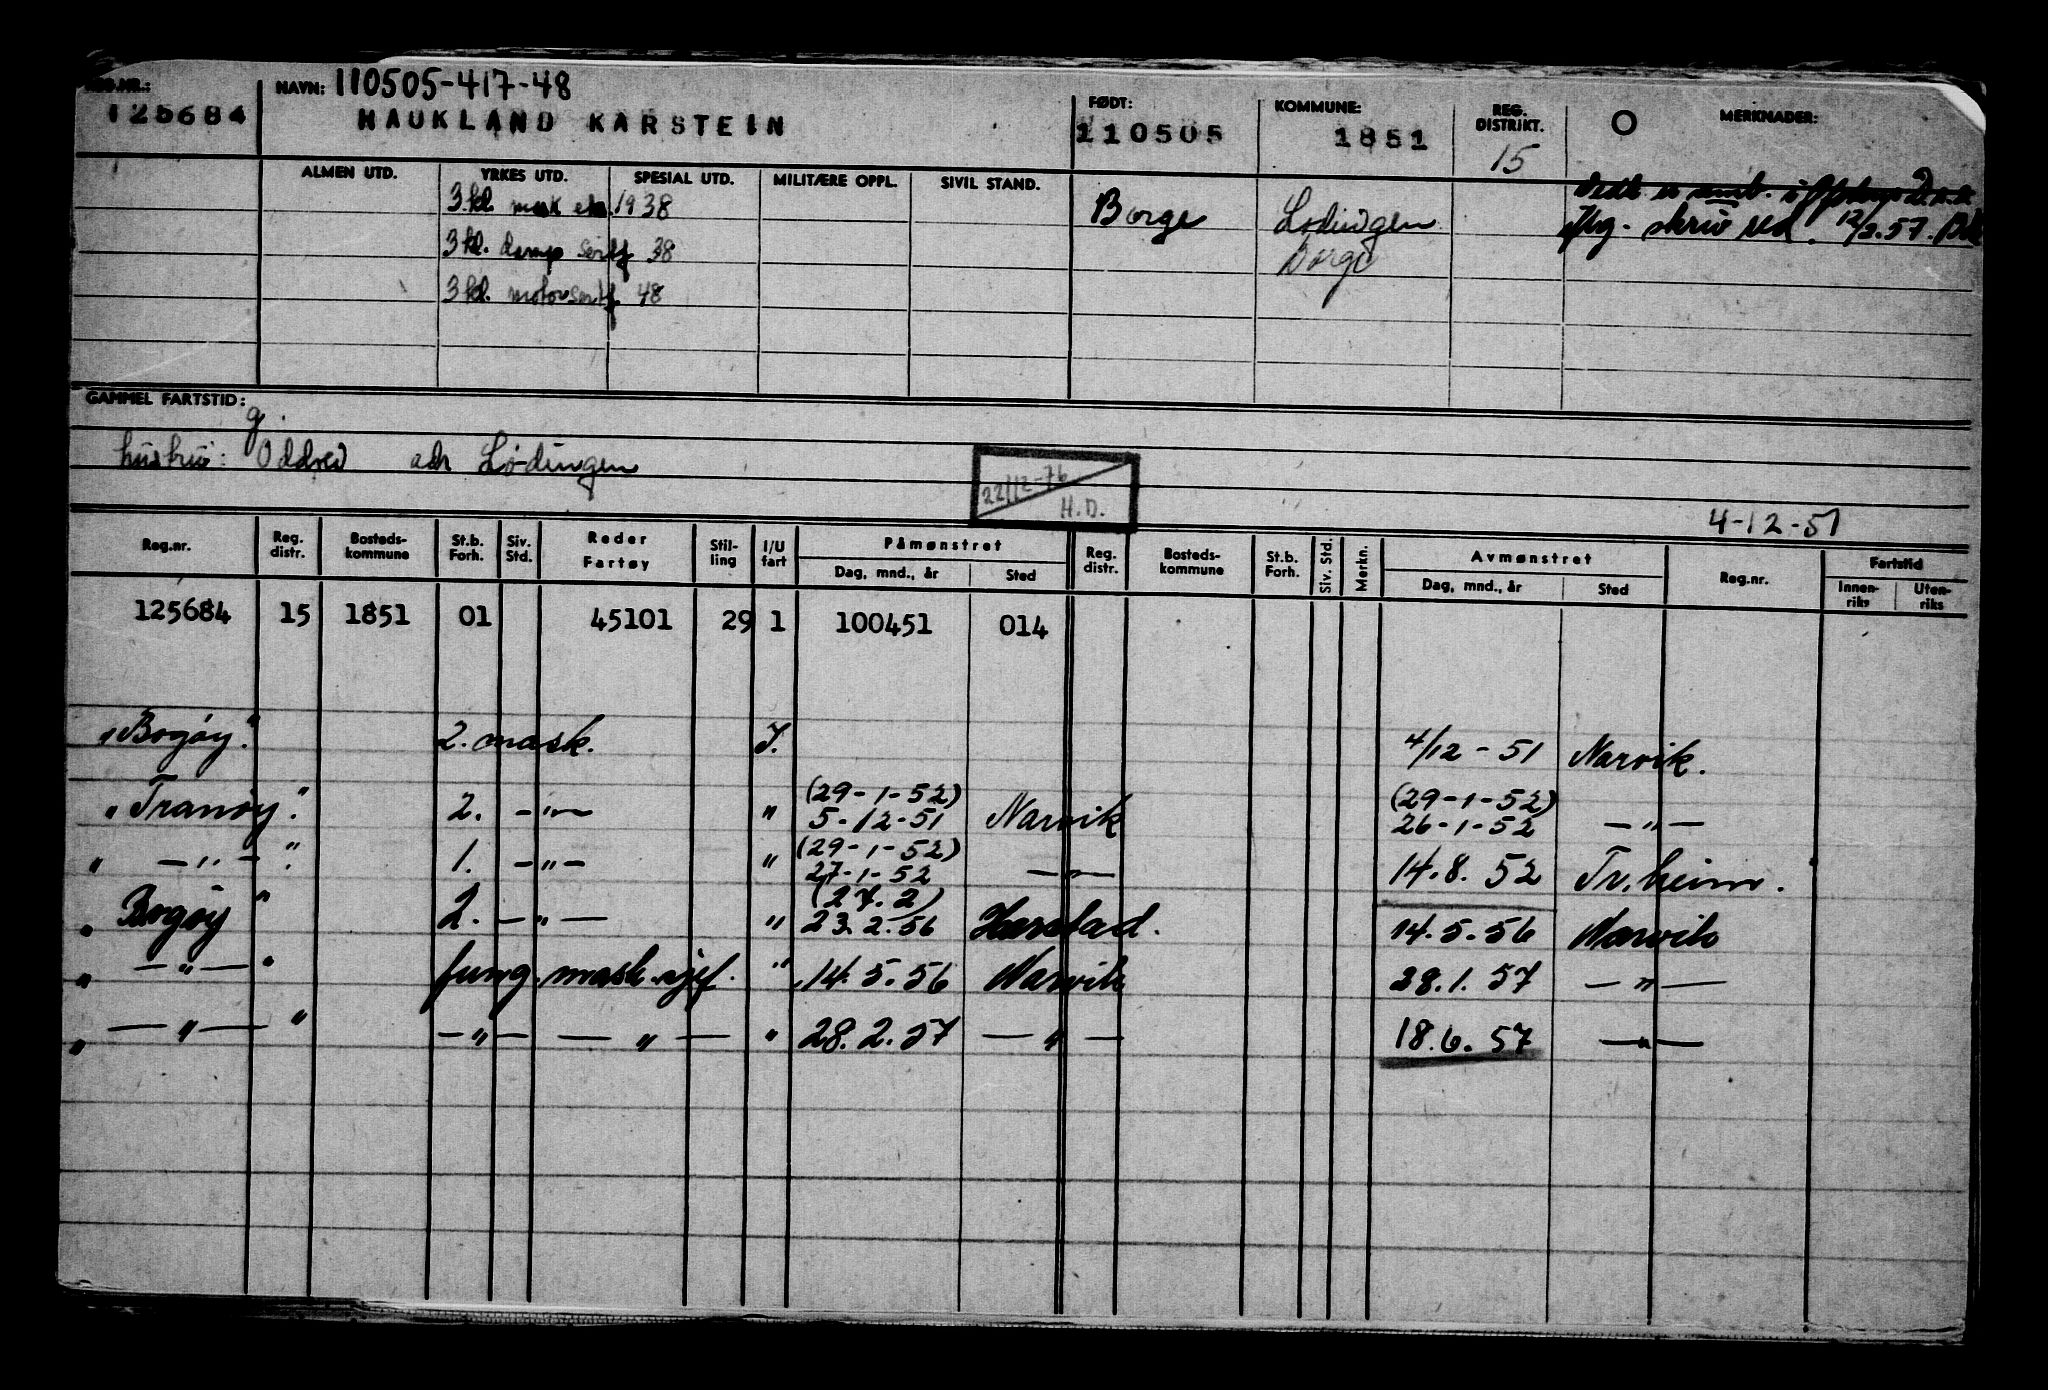 REG.NR.: NAVN: 110505-417-48 FØDT: KOMMUNE: REG. DISTRIKT. O MERKNADER:
125684 HAUKLAND KARSTEIN 110505 1851 15
ALMEN UTD. YRKES UTD. SPESIAL UTD. MILITÆRE OPPL. SIVIL STAND.
3.kl. mask eks. 1938 Borge Lødingen
3 kl. damp sertf 38 Borge
3 kl. motorsertf. 48
skriv ved. 12/2.57.
GAMMEL FARTSTID:
g.
hustru: Oddrid adr Lødingen
22/12-76
H.D.
4-12-51
Reg.nr. Reg. distr. Bosteds- kommune St.b. Forh. Siv. Std. Reder Fartøy Stil- ling I/U fart Påmønstret Reg. distr. Bosteds- kommune St.b. Forh. Siv. Std. Merkn. Avmønstret Reg.nr. Fartstid
Dag, mnd., år Sted Dag, mnd., år Sted Innen- riks Uten- riks
125684 15 1851 01 45101 29 1 100451 014
"Bogøy." 2. mask. I. 4/12 - 51 Narvik.
(29-1-52) (29-1-52)
"Tranøy". 2. -"- " 5-12-51 Narvik 26-1-52 -"-
(29-1-52)
" -"- ". 1. -"- " 27-1-52 -"- 14.8. 52 Tr.heim.
(27.2)
"Bogøy" 2. -"- " 23.2.56 Harstad. 14.5.56 Narvik
" -"- " fung. mask.sjef. " 14.5.56 Narvik 28.1.57 -"-
" -"- " -"- -"- " 28.2.57 -"- 18.6.57 -"-